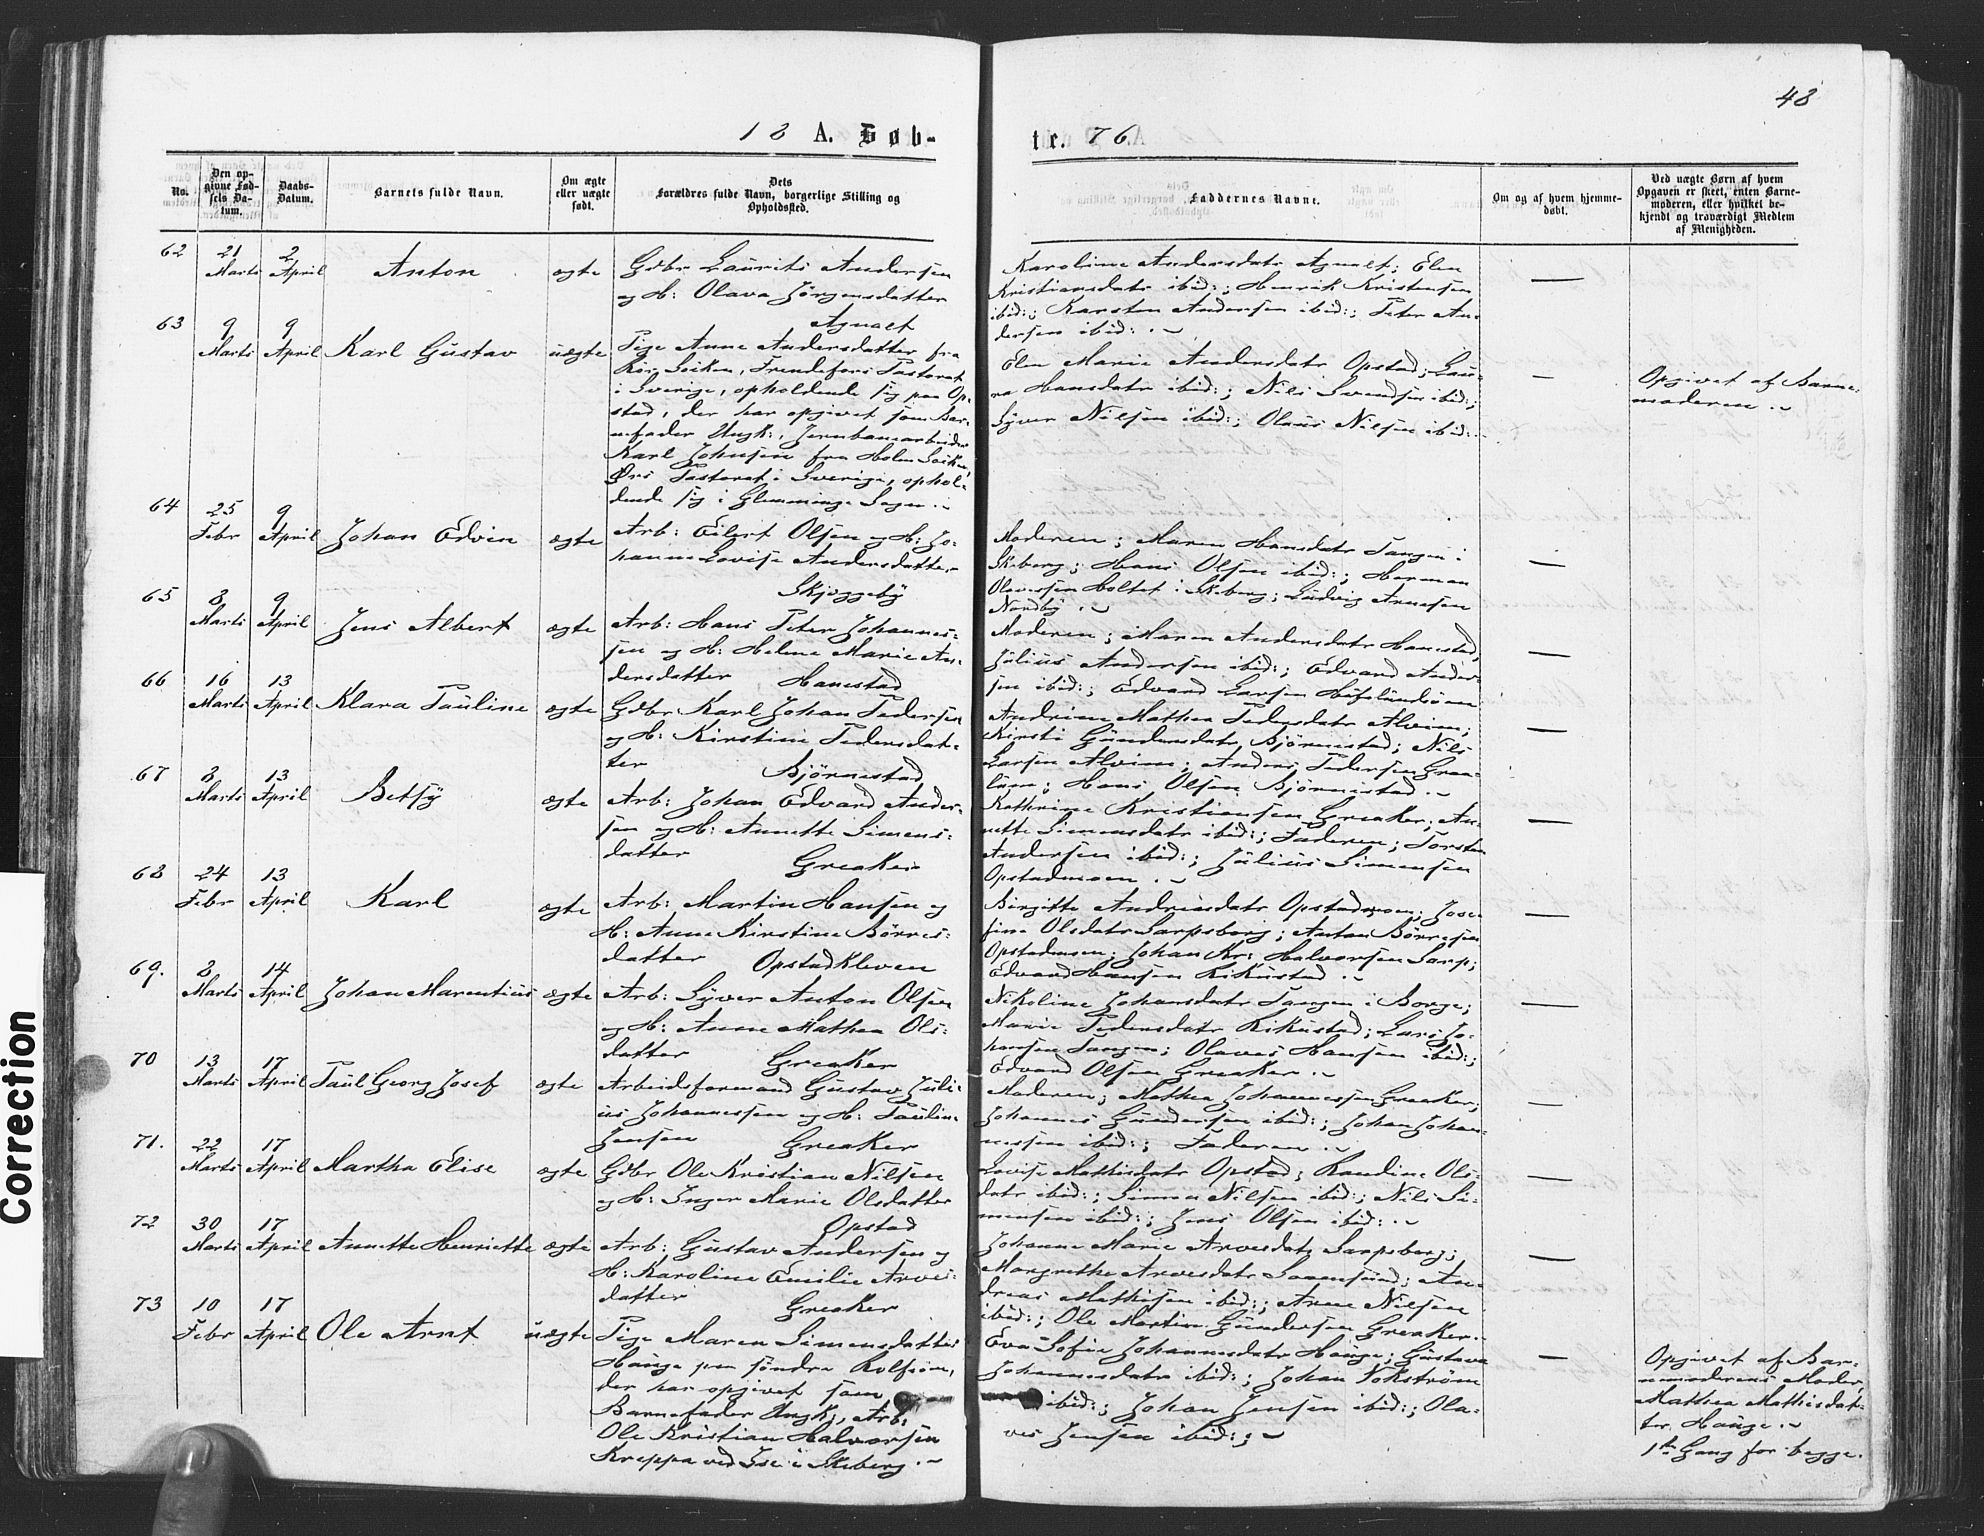 48
18 A. Døb-
te. 76.
No.
Den op-
givne Fød-
sels Da-
tum.
Daabs-
Datum.
Barnets fulde Navn.
Om ægte
eller uægte
født.
Dets
Forældres fulde Navn, borgerlige Stilling og
Opholdssted.
Faddernes Navne.
Om og af hvem hjemme-
døbt.
Ved uægte Børn af hvem
Opgaven er skeet, enten Barne-
moderen, eller hvilket be-
kjendt og troværdigt Medlem
af Menigheden.
62 21 Marts 2 April Anton ægte
Gdbr Laurits Andersen
og H: Olava Jörgensdatter
Agnalt
Karoline Andersdatr Agnalt; Elen
Kristiansdatr ibid:; Henrik Kristensen
ibid:; Karsten Andersen ibid:; Peter An-
dersen ibid: .~
63 9 Marts 9 April Karl Gustav uægte
Pige Anne Andersdatter fra
Soken, Pastorat
i Sverige, opholdende sig paa Op-
stad, der har opgivet som Bar-
nefader Ungk:, Jernbanearbeider
Karl Johnsen fra Holm Soken,
Örs Pastorat i Sverige, ophol-
dende sig i Glemminge Sogn .~
Elen Marie Andersdatr Opstad; Lau-
ra Hansdatr ibid:; Nils Svendsen ibid:;
Syver Nilsen ibid:; Olaus Nilsen ibid: .
Opgivet af Barne-
moderen .~
64 25 Febr 9 April Johan Edvin ægte
Arb: Eilert Olsen og H: Jo-
hanne Lovise Andersdatter
Skjoggeby
Moderen; Maren Hansdatr Tangen i
Skeberg; Hans Olsen ibid:; Herman
Olavessen Holtet i Skeberg; Ludvig Arnesen
Nordby .~
65 8 Marts 9 April Jens Albert ægte
Arb: Hans Peter Johannes-
sen og H: Helene Marie An-
dersdatter Hanestad
Moderen; Maren Andersdatr Hanestad;
Julius Andersen ibid:; Edvard Ander-
sen ibid:; Edvard Larsen Hafslundsöen
66 16 Marts 13 April Klara Pauline ægte
Gdbr Karl Johan Pedersen
og H: Kirstine Pedersdat-
ter Björnestad
Andrine Mathea Pedersdatr Alvim;
Kirsti Gundersdatr Björnestad; Nils
Larsen Alvim; Anders Pedersen Graa-
lum; Hans Olsen Björnestad .~
67 8 Marts 13 April Betsy ægte
Arb: Johan Edvard Ander-
sen og H: Annette Simens-
datter Greaker
Kathrine Kristiansen Greaker; An-
nette Simensdatr ibid:; Faderen; Torsten
Andersen ibid:; Julius Simensen
Opstadmoen .~
68 24 Febr 13 April Karl ægte
Arb: Martin Hansen og
H: Anne Kirstine Börres-
datter Opstadkleven
Birgitte Andreasdatr Opstadmoen; Jose-
fine Olsdatr Sarpsborg; Anton Börresen
Opstadmoen; Johan Kr: Halvorsen Sarp;
Edvard Hansen Kikustad .~
69. 8 Marts 14 April Johan Marentius ægte
Arb: Syver Anton Olsen
og H: Anne Mathea Ols-
datter Greaker
Nikoline Johansdatr Tangen i Borge;
Marie Pedersdatr Kikustad; Lars Jo-
hansen Tangen; Olaves Hansen ibid:;
Edvard Olsen Greaker .~
70 13 Marts 17 April Paul Georg Josef ægte
Arbeidsformand Gustav Juli-
us Johannessen og H: Pauline
Jensen Greaker
Moderen; Mathea Johannessen Greaker;
Johannes Gundersen ibid:; Johan Johan-
nessen ibid:; Faderen .~
71. 22 Marts 17 April Martha Elise ægte
Gdbr Ole Kristian Nilsen
og H: Inger Marie Olsdatter
Opstad
Lovise Mathisdatr Opstad; Randine Ols-
datr ibid:; Simen Nilsen ibid:; Nils Si-
mensen ibid:; Jens Olsen ibid: .~
72 30 Marts 17 April Annette Henriette ægte
Arb: Gustav Andersen og
H: Karoline Emilie Arves-
datter Greaker
Johanne Marie Arvesdatr Sarpsborg;
Margrethe Arvesdatr Sannesund; An-
dreas Mathisen ibid:; Arne Nilsen
ibid:; Ole Martin Gundersen Greaker .~
73 10 Febr 17 April Ole Arnt uægte
Pige Maren Simensdatter
Hauge paa söndre Rolfsöen,
der har opgivet som
Barnefader Ungk:, Arb:
Ole Kristian Halvorsen
Kreppa ved Ise i Skeberg .~
Eva Sofie Johannesdatr Hauge; Gustava
Johannesdatr ibid:; Johan Sokström
ibid:; Johan Jensen ibid:; Ola-
ves Jensen ibid:; ~
Opgivet af Bar-
nemoderens Moder,
Mathea Mathisdat-
ter, Hauge .~
1ste Gang for begge.
Correction